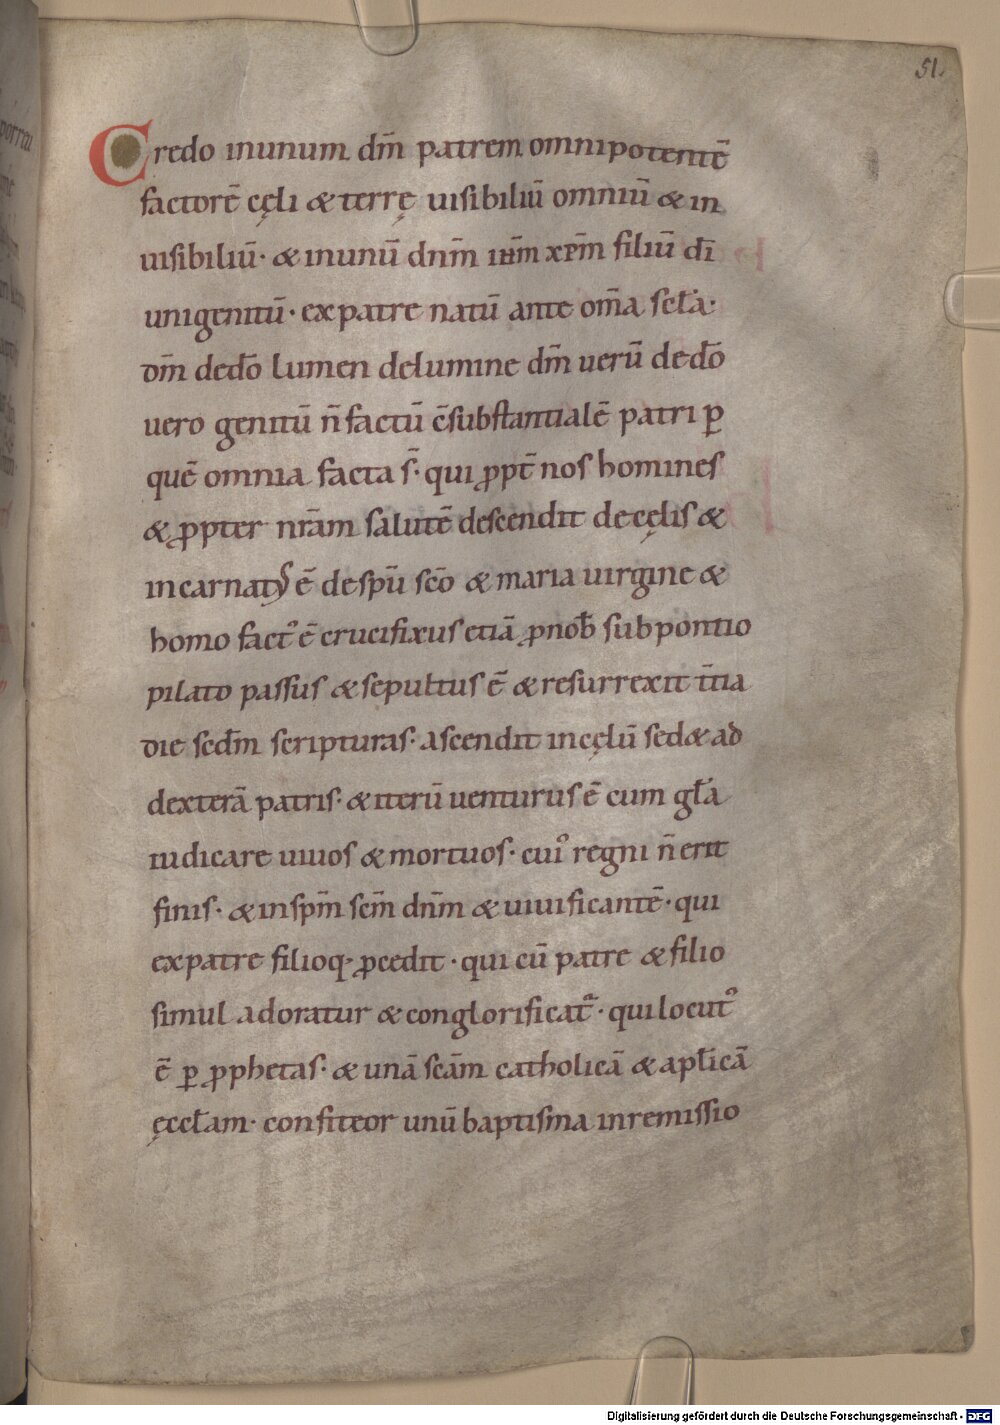 51.
Credo inunum dm̄ patrem omnipotentē
factorē cęli & terrę uisibiliū omniū & in
uisibiliū· & inunū dnm̄ ihm̄ xpm̄ filiū dī
unigenitū· expatre natū ante om̄a scła·
dm̄ dedō lumen delumine dm̄ uerū dedō
uero genitū n̄ factū c̄substantialē patri ꝑ
quē omnia facta s̄· qui ꝓpt̄ nos homines
& ꝓpter nr̄am salutē descendit decęlis &
incarnatꝰ ē despū scō & maria uirgine &
homo factꝰ ē crucifixus etiā ꝓnob̄ subpontio
pilato passus & sepultus ē & resurrexit t̄tia
die scdm̄ scripturas· ascendit incęlū sed& ad
dexterā patris· & iterū uenturus ē cum gła
iudicare uiuos & mortuos· cuiꝰ regni n̄ erit
finis· & inspm̄ scm̄ dnm̄ & uiuificantē· qui
expatre filioq· ꝓcedit· qui cū patre & filio
simul adoratur & conglorificat᷑· qui locutꝰ
ē ꝑ ꝓphetas· & unā scām catholicā & apłicā
ęccłam· confiteor unū baptisma inremissio
Digitalisierung gefördert durch die Deutsche Forschungsgemeinschaft - DFG